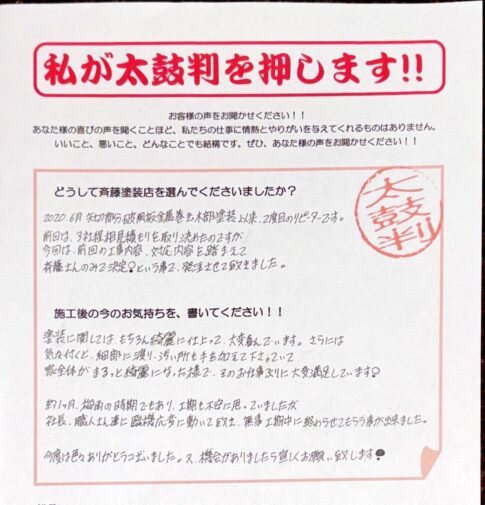 私が太鼓判を押します!!
お客様の声をお聞かせください！！
あなた様の喜びの声を聞くことほど、私たちの仕事に情熱とやりがいを与えてくれるものはありません。
いいこと、悪いこと、どんなことでも結構です。ぜひ、あなた様の声をお聞かせください！！
どうして斉藤塗装店を選んでくださいましたか？
太鼓判
2020.6月 破風板金属巻き木部塗装以来、2度目のリピーターです。
前回は、3社様相見積もりを取り決めたのですが
今回は、前回の工事内容、対応内容を踏まえて
斉藤さんのみで決定!という事で、発注させて致きました。
施工後の今のお気持ちを、書いてください！！
塗装に関しては、もちろん綺麗に仕上って、大変喜んでいます。さらには
気を付くと、細部に渡り、汚い所も手を加えて下さっていて
家全体が まるっと綺麗になった様で、そのお仕事ぶりに大変満足しています!
約1ヶ月、梅雨の時期でもあり、工期も不安に思っていましたが
社長、職人さん達に臨機応変に動いて致き、無事工期中に終わらせてもらう事が出来ました。
今度は色々ありがとうございました。又、機会がありましたら宜しくお願い致します!